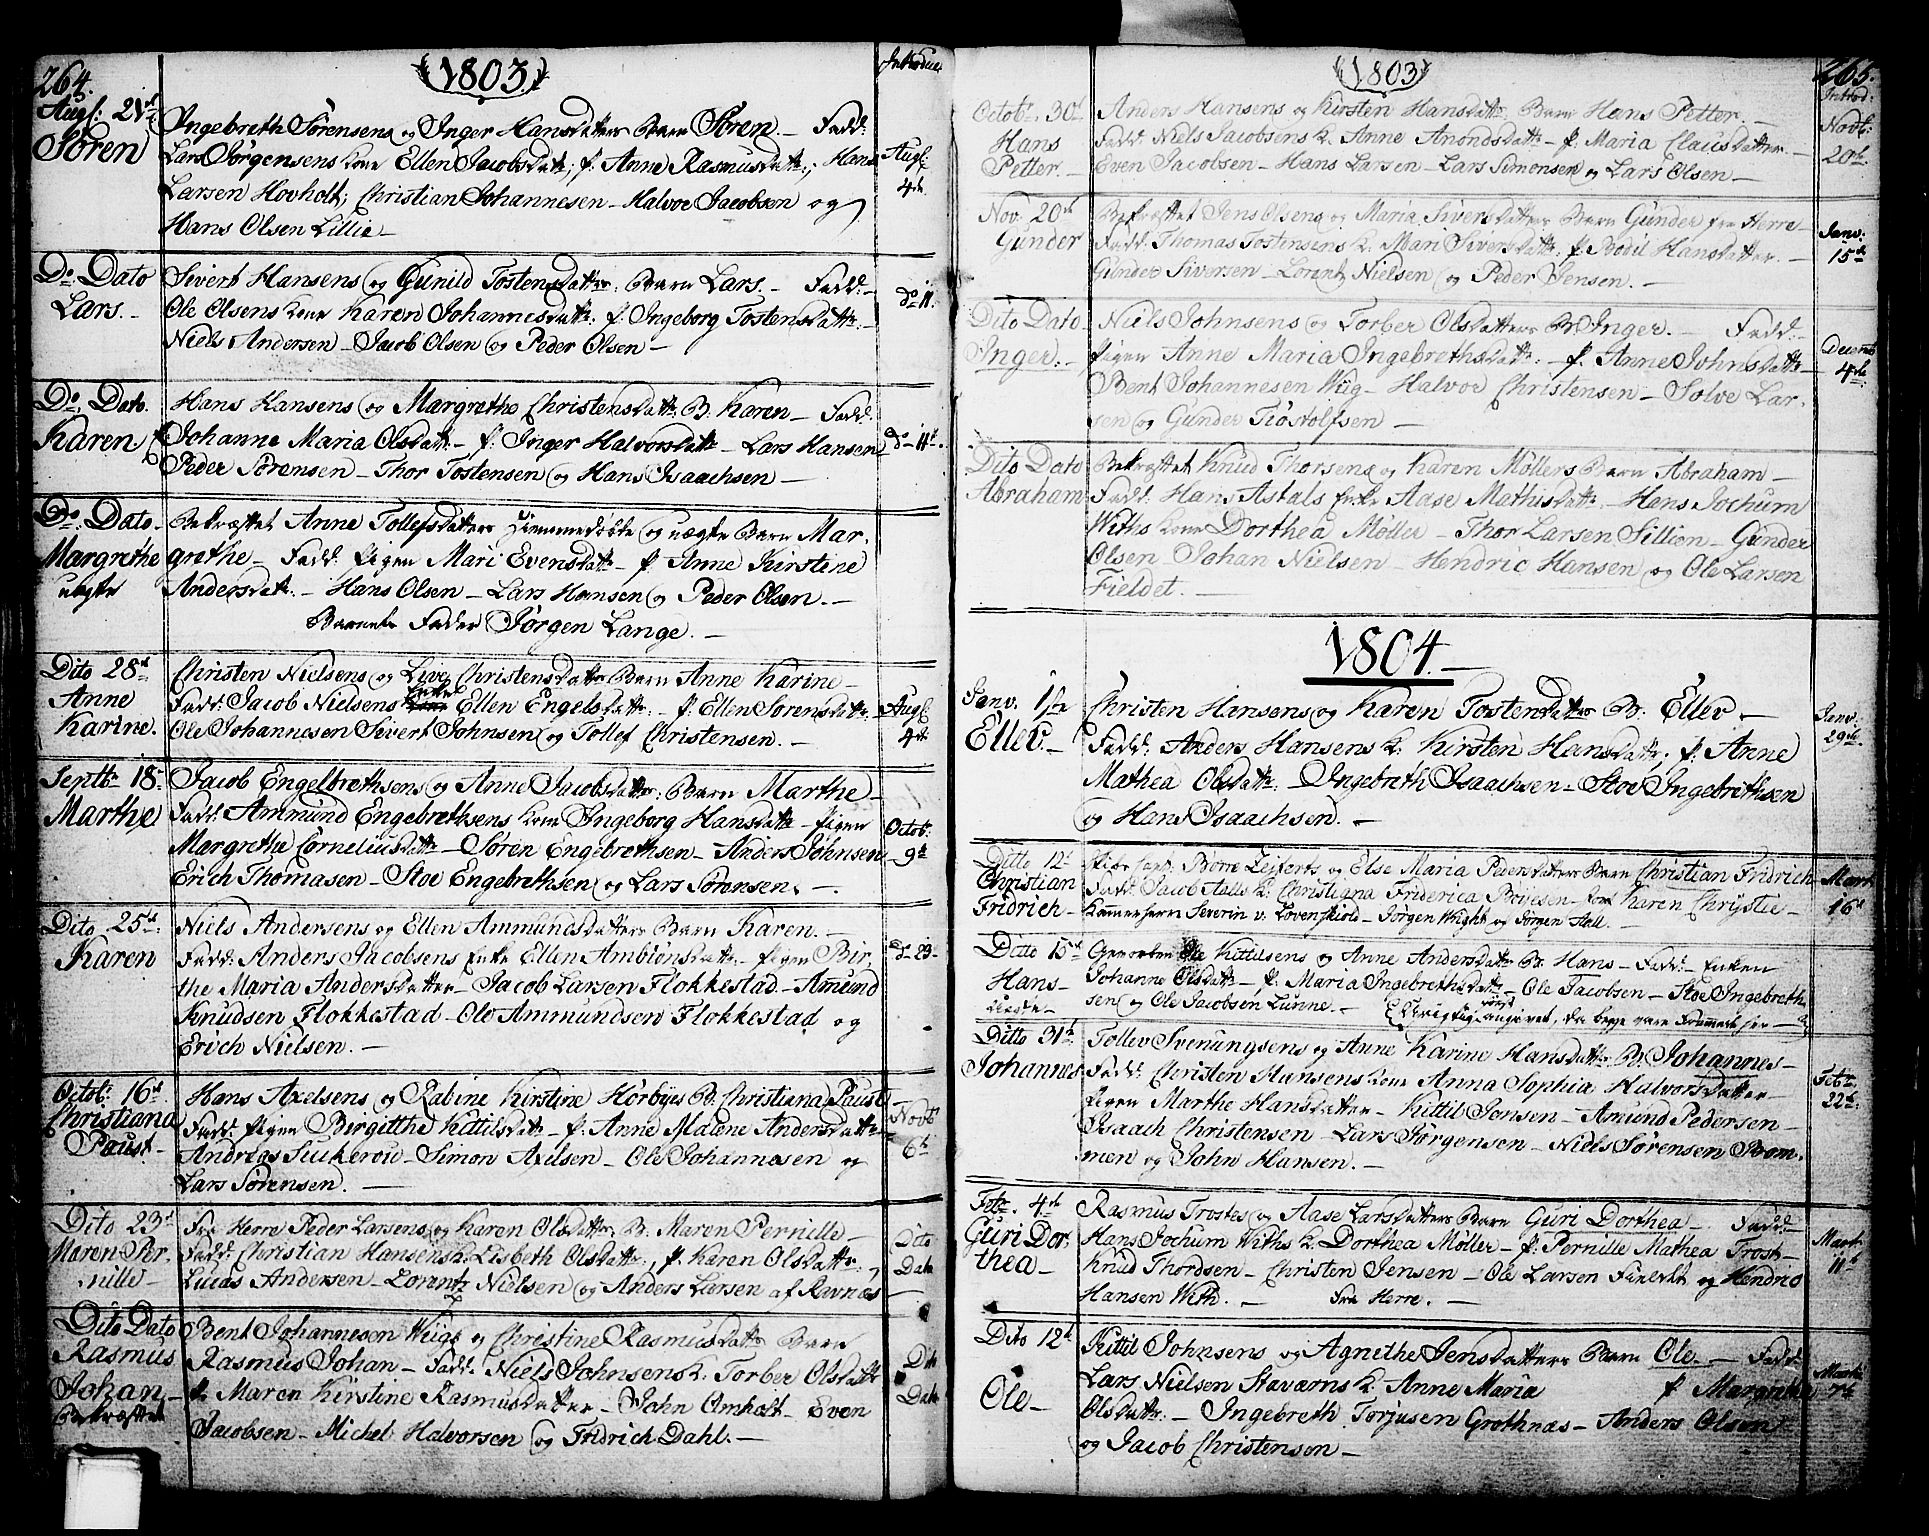 264.
1803
Introduc:
Augs: 21de
Søren
Ingebreth Sørensens og Inger Hansdatters Barn Søren. – Fadd:
Lars Jørgensens kone Ellen Jacobsdatt:, p. Anne Rasmusdatt:, Hans
Larsen Hovholt; Christian Johannesen – Halvor Jacobsen og
Hans Olsen Lillie –
Augs:
4de
Do Dato
Lars. –
Sivert Hansens og Gunild Tostensdatters: Barn Lars. – Fadd: –
Ole Olsens kone Karen Johannesdatt: p. Ingeborg Tostensdatt: –
Niels Andersen – Jacob Olsen og Peder Olsen –
do 11.
Do Dato.
Karen.
Hans Hansens og Margrethe Christensdatt: B: Karen – Fadd:
Johanne Maria Olsdatt: – p. Inger Halvorsdatt: – Lars Hansen
Peder Sørensen – Thor Tostensen og Hans Isaachsen –
do 11te.
Do. Dato.
Margrethe
uægte
Bekræftet Anne Tollefsdatters Hiemmedøbte og uægte Barn Mar-
grethe – Fadd: pigen Mari Evensdatt: – p. Anne Kirstine
Andersdat: – Hans Olsen – Lars Hansen og Peder Olsen. –
Barnets Fader Jørgen Lange. –
Dito 28de
Anne
Karine.
Christen Nielsens og Live Christensdatt: Barn Anne Karine –
Fadd: Jacob Nielsens Enke Ellen Engelsdatt: – p. Ellen Sørensdatt: –
Ole Johannesen Sivert Johnsen og Tollef Christensen. –
Augs:
4de
Septbr 18–
Marthe
Jacob Engelbrethsens og Anne Jacobsdatter: Barn Marthe –
Fadd: Ammund Engebrethsens kone Ingeborg Hansdatt: – pigen
Margrethe Corneliusdatt: – Søren Engebrethsen – Anders Johnsen
Erich Thomasen – Stoe Engebrethsen og Lars Sørensen. –
Octob:
9de
Dito 25de
Karen
Niels Andersens og Ellen Ammundsdatters Barn Karen. –
Fadd: Anders Jacobsens Enke Ellen Ambiønsdatt: – pigen Bir-
the Maria Andersdatter – Jacob Larsen Flokkestad – Amund
Knudsen Flokkestad – Ole Ammundsen Flokkestad og
Erich Nielsen. –
do 23–
Octobr: 16de
Christiana
Paust –
Hans Axelsens og Rabine Kirstine Hørbyes B: Christiana Paust –
Fadd: pigen Birgitthe Kittilsdatt: – p. Anne Malene Andersdatt: –
Andreas Suckerow – Simon Axelsen – Ole Johannesen og
Lars Sørensen. –
Novb:
6te
Dito 23de
Maren Per-
nille –
Fra Herre Peder Larsens og Karen Olsdatter: B: Maren Pernille –
Fadd: Christian Hansens k: Lisbeth Olsdatt:, p. Karen Olsdatt:,
Lucas Andersen – Lorentz Nielsen og Anders Larsen af Ravnæs –
Dito
Dato
Dito Dato
Rasmus
Johan –
Bekræftet
Bent Johannesen Wiigs og Christine Rasmusdatt: Barn
Rasmus Johan – Fadd: Niels Johnsens k: Torber Olsdatt:
p. Maren Kirstine Rasmusdatter – John Omholt – Even
Jacobsen – Michel Halvorsen og Fridrich Dahl. –
Dito
Dato
1803
265.
Introd:
Octobr: 30de
Hans
Petter. –
Anders Hansens og Kirsten Hansdatt: Barn Hans Petter. –
Fadd: Niels Jacobsens k: Anne Anondsdatt: – p. Maria Clausdatter. –
Even Jacobsen – Hans Larsen – Lars Simonsen og Lars Olsen –
Novb:
20de
Nov: 20de
Gunder
Bekræftet Jens Olsens og Maria Siversdatters Barn Gunder fra Herre –
Fadd: Thomas Tostensens k: Mari Siversdatt: p. Bodil Hansdatter. –
Gunder Siversen – Lorentz Nielsen og Peder Jensen. –
Janv:
15de
Dito Dato
Inger. –
Niels Johnsens og Torber Olsdatters B: Inger. – Fadd: –
pigen Anne Maria Ingebrethsdatt: – p. Anne Johnsdatt: –
Bent Johannesen Wiig – Halvor Christensen – Solve Lar-
sen og Gunder Tiøstolfsen –
Decemb:
4de
Dito Dato
Abraham
Bekræftet Knud Thorsens og Karen Møllers Barn Abraham –
Fadd: Hans Astals Enke Aase Mathisdatt: – Hans Jochum
Withs kone Dorthea Møller – Thor Larsen Sillien – Gunder
Olsen – Johan Nielsen – Hendric Hansen og Ole Larsen
Fieldet. –
1804. –
Janv. 1ste
Ellev. –
Christen Hansens og Karen Tostensdatters B: Ellev. –
Fadd: Anders Hansens k: Kirsten Hansdatt: p. Anne
Mathea Olsdatt: – Ingebreth Isaachsen – Stoe Ingebrethsen
og Hans Isaachsen. –
Janv:
29de
Ditto 12te
Christian
Fridrich –
Børre Zeiferts og Else Maria Pedersdatters Barn Christian Fridrich –
Fadd: Jacob Aalls k: Christiana Friderica Boyesen – Karen Chrystie –
Kammerherre Severin v: Løvenskiold – Jørgen Wright og Jørgen Aall. –
Mart:
16de
Ditto 15de
Hans –
Uægte –
Ole Kittilsens og Anne Andersdatt: B: Hans – Fadd: – Enken
Johanne Olsdatt: – p. Maria Ingebrethsdatt: – Ole Jacobsen – Stoe Ingebreth-
sen og Ole Jacobsen Lunne. – angivet, da begge vare
Ditto 31te
Johannes
Tollev Svenungsens og Anne Karine Hansdatt: B: Johannes –
Fadd: Christen Hansens kone Anna Sophia Halvorsdatter –
pigen Marthe Hansdatter – Kittil Jensen – Amund Pedersen –
Isaach Christensen – Lars Jørgensen – Niels Sørensen Bom-
men og John Hansen. –
Febr:
22de
Febr. 4de
Guri Dor-
thea –
Rasmus Trostes og Aase Larsdatters Barn Guri Dorthea – Fadd: –
Hans Jochum Withs k: Dorthea Møller – p. Pernille Mathea Trost –
Knud Thordsen – Christen Jensen – Ole Larsen Fieldet og Hendric
Hansen With. – Fra Herre. –
Mart:
11te
Dito 12te
Ole –
Kittil Johnsens og Agnethe Jensdatters Barn Ole. – Fadd:
Lars Nielsen Staværns k: Anne Maria p. Margrethe
Olsdatt: – Ingebreth Torjusen Grothnæs – Anders Olsen
og Jacob Christensen –
Marti
7de